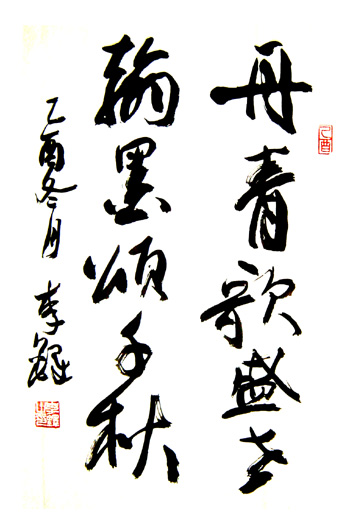 丹青歌盛世
翰墨颂千秋
乙酉冬月 李
乙酉